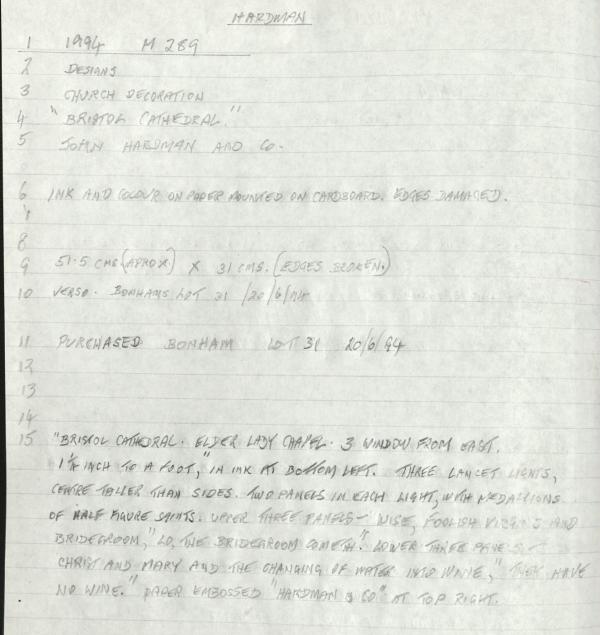 HARDMAN
1 1994 M 289
2 DESIGNS
3 CHURCH DECORATION
4 "BRISTOL CATHEDRAL."
5 JOHN HARDMAN AND CO.
6 INK AND COLOUR ON PAPER MOUNTED ON CARDBOARD. EDGES DAMAGED.
7
8
9 51.5 CMS (APROX) X 31 CMS. (EDGES BROKEN.)
10 VERSO. BONHAMS LOT 31 /20/6/94
11 PURCHASED BONHAM LOT 31 20/6/94
12
13
14
15 "BRISTOL CATHEDRAL. ELDER LADY CHAPEL. 3 WINDOW FROM EAST.
INCH TO A FOOT," IN INK AT BOTTOM LEFT. THREE LANCET LIGHTS,
CENTRE TALLER THAN SIDES. TWO PANELS IN EACH LIGHT, WITH MEDALLIONS
OF HALF FIGURE SAINTS. UPPER THREE PANELS - WISE, FOOLISH VIRGINS AND
BRIDEGROOM, "LO, THE BRIDEGROOM COMETH". LOWER THREE PANELS
CHRIST AND MARY AND THE CHANGING OF WATER INTO WINE, "THEY HAVE
NO WINE." PAPER EMBOSSED "HARDMAN & CO" AT TOP RIGHT.